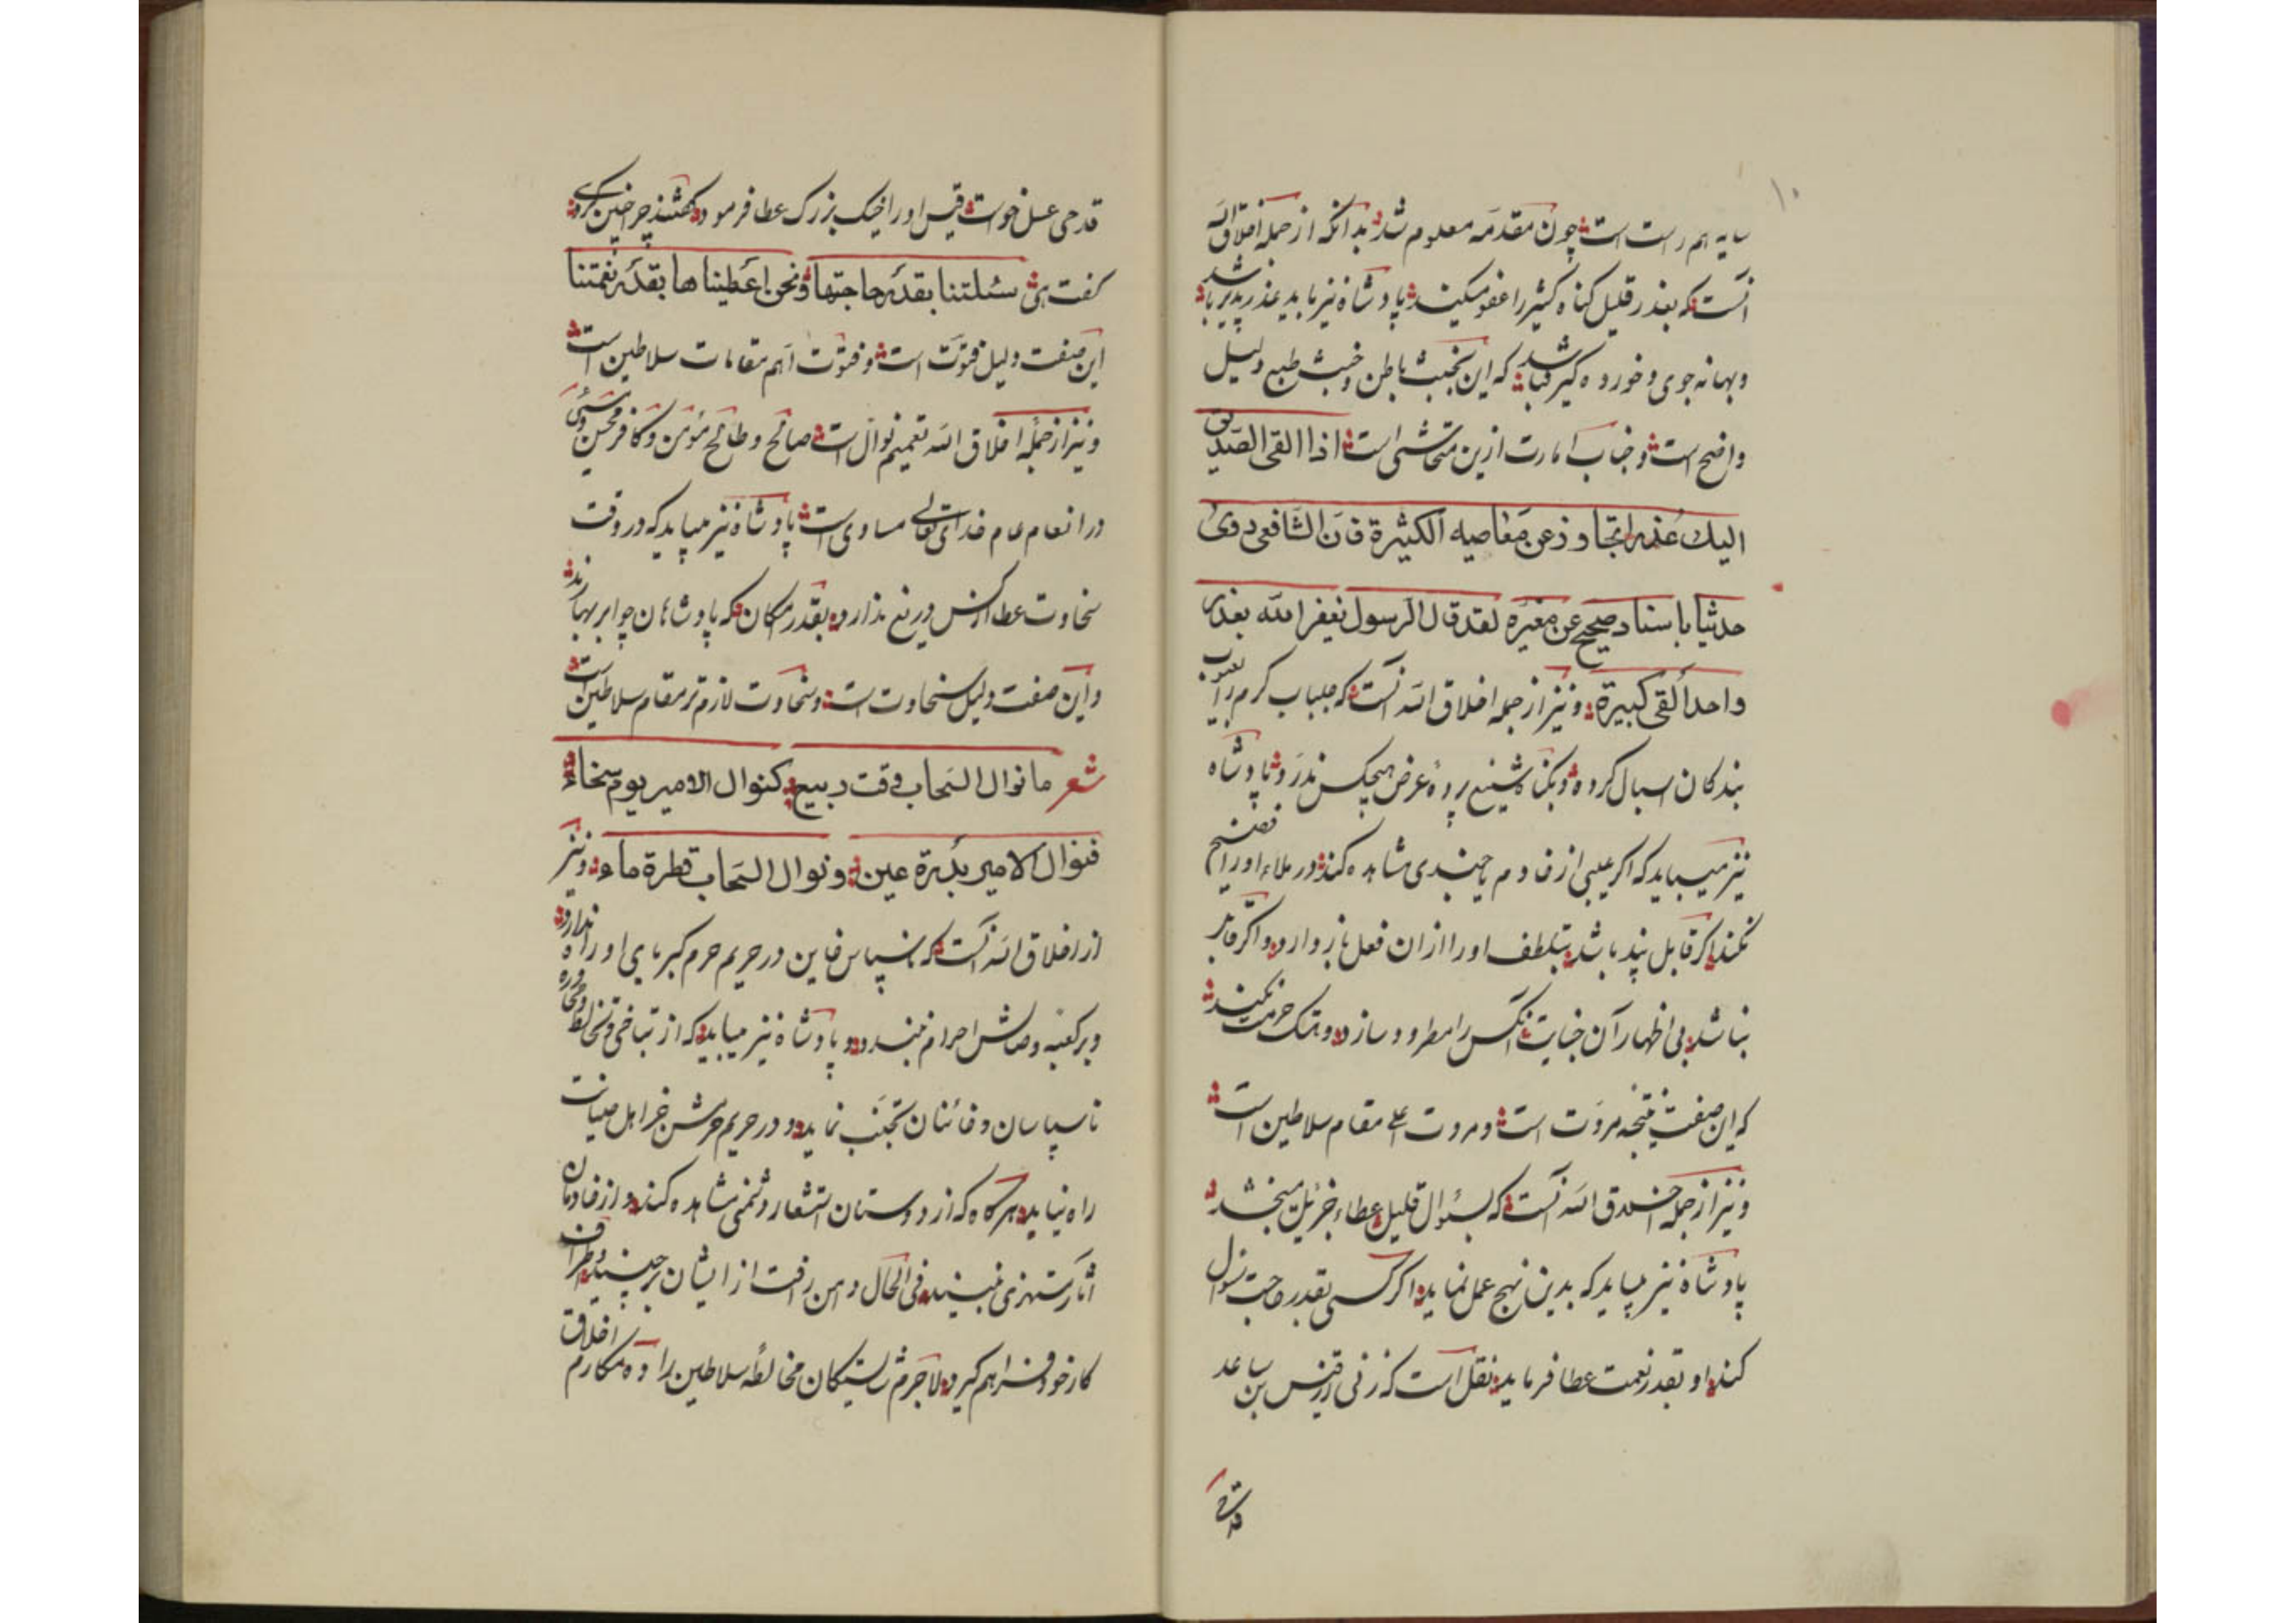 ۱۰
سایه هم راست است چون مقدمه معلوم شد بدانکه از جمله اخلاق الله
آنست که بعذر قلیل کناه کثیر را عفو میکند پادشاه نیز باید عذرپذیر باشد
و بهانه جوی و خورده کیر نباشد که این بخبث باطن و خبث طبع دلیل
واضح است و جناب امارت ازین متحاشی است اذا القی الصدیق
الیک عذرا تجاوز عن معاصیه الکثیرة فان الشافعی روی
حدثنا باسناد صحیح عن مغیره لقد قال الرسول یغفر الله بعذر
واحد ألقی کبیرة و نیز از جمله اخلاق الله آنست که جلباب کرم را بر عیوب
بندکان اسبال کرده و بکناه شنیع پرده عرض هیچکس ندرد و پادشاه
نیز میباید که اکر عیبی از خادم یا جندی مشاهده کند در ملاء او را فضیح
نکند اکر قابل پند باشد بتلطف او را از ان فعل باز دارد و اکر قابل
نباشد بی اظهار آن خیانت آنکس را مطرود سازد و هتک حرمت نکند
که این صفت نتیجه مروت است و مروت اعلی مقام سلاطین است
و نیز از جمله اخلاق الله آنست که بسئوال قلیل عطاء جزیل میبخشد
پادشاه نیز میباید که بدین نهج عمل نماید اکر کسی بقدر حاجت سؤال
کند او بقدر نعمت عطا فرماید نقل است که زنی از قیس بن ساعد
قدحی
قدحی عسل خواست قیس او را خیک بزرک عطا فرمود کفتند چرا چنین کردی
کفت هی سئلتنا بقدر حاجتها و نحن اعطیناها بقدر نعمتنا
این صفت دلیل فتوت است و فتوت اهم مقامات سلاطین است
و نیز از جمله اخلاق الله تعمیم نوال است صالح و طالح مؤمن و کافر محسن و مسئی
در انعام عام خدای تعالی مساوی است پادشاه نیز میباید که در وقت
سخاوت عطا از کس دریغ ندارد بقدر امکان که پادشاهان چو ابر بهارند
و این صفت دلیل سخاوت است و سخاوت لازم تر مقام سلاطین است
شعر ما نوال السحاب وقت ربیع کنوال الامیر یوم سخاء
فنوال الامیر بدرة عین و نوال السحاب قطرة ماء و نیز
از اخلاق الله آنست که ناسپاس خاین در حریم حرم کبریای او راه ندارد
و بر کعبه وصالش احرام نبندد و پادشاه نیز میباید که از تباخی و تخالط و محاوره
ناسپاسان و خائنان تجنب نماید و در حریم حرمش جز اهل صیانت
راه نیابد هر کاه که از دوستان استشعار دشمنی مشاهده کند و از خادمان
آثار تمنی ببیند فی الحال دامن رافت از ایشان برچیند و اطراف
کار خود فراهم کیرد لا جرم شایستکان مخالطه سلاطین را ده مکارم اخلاق